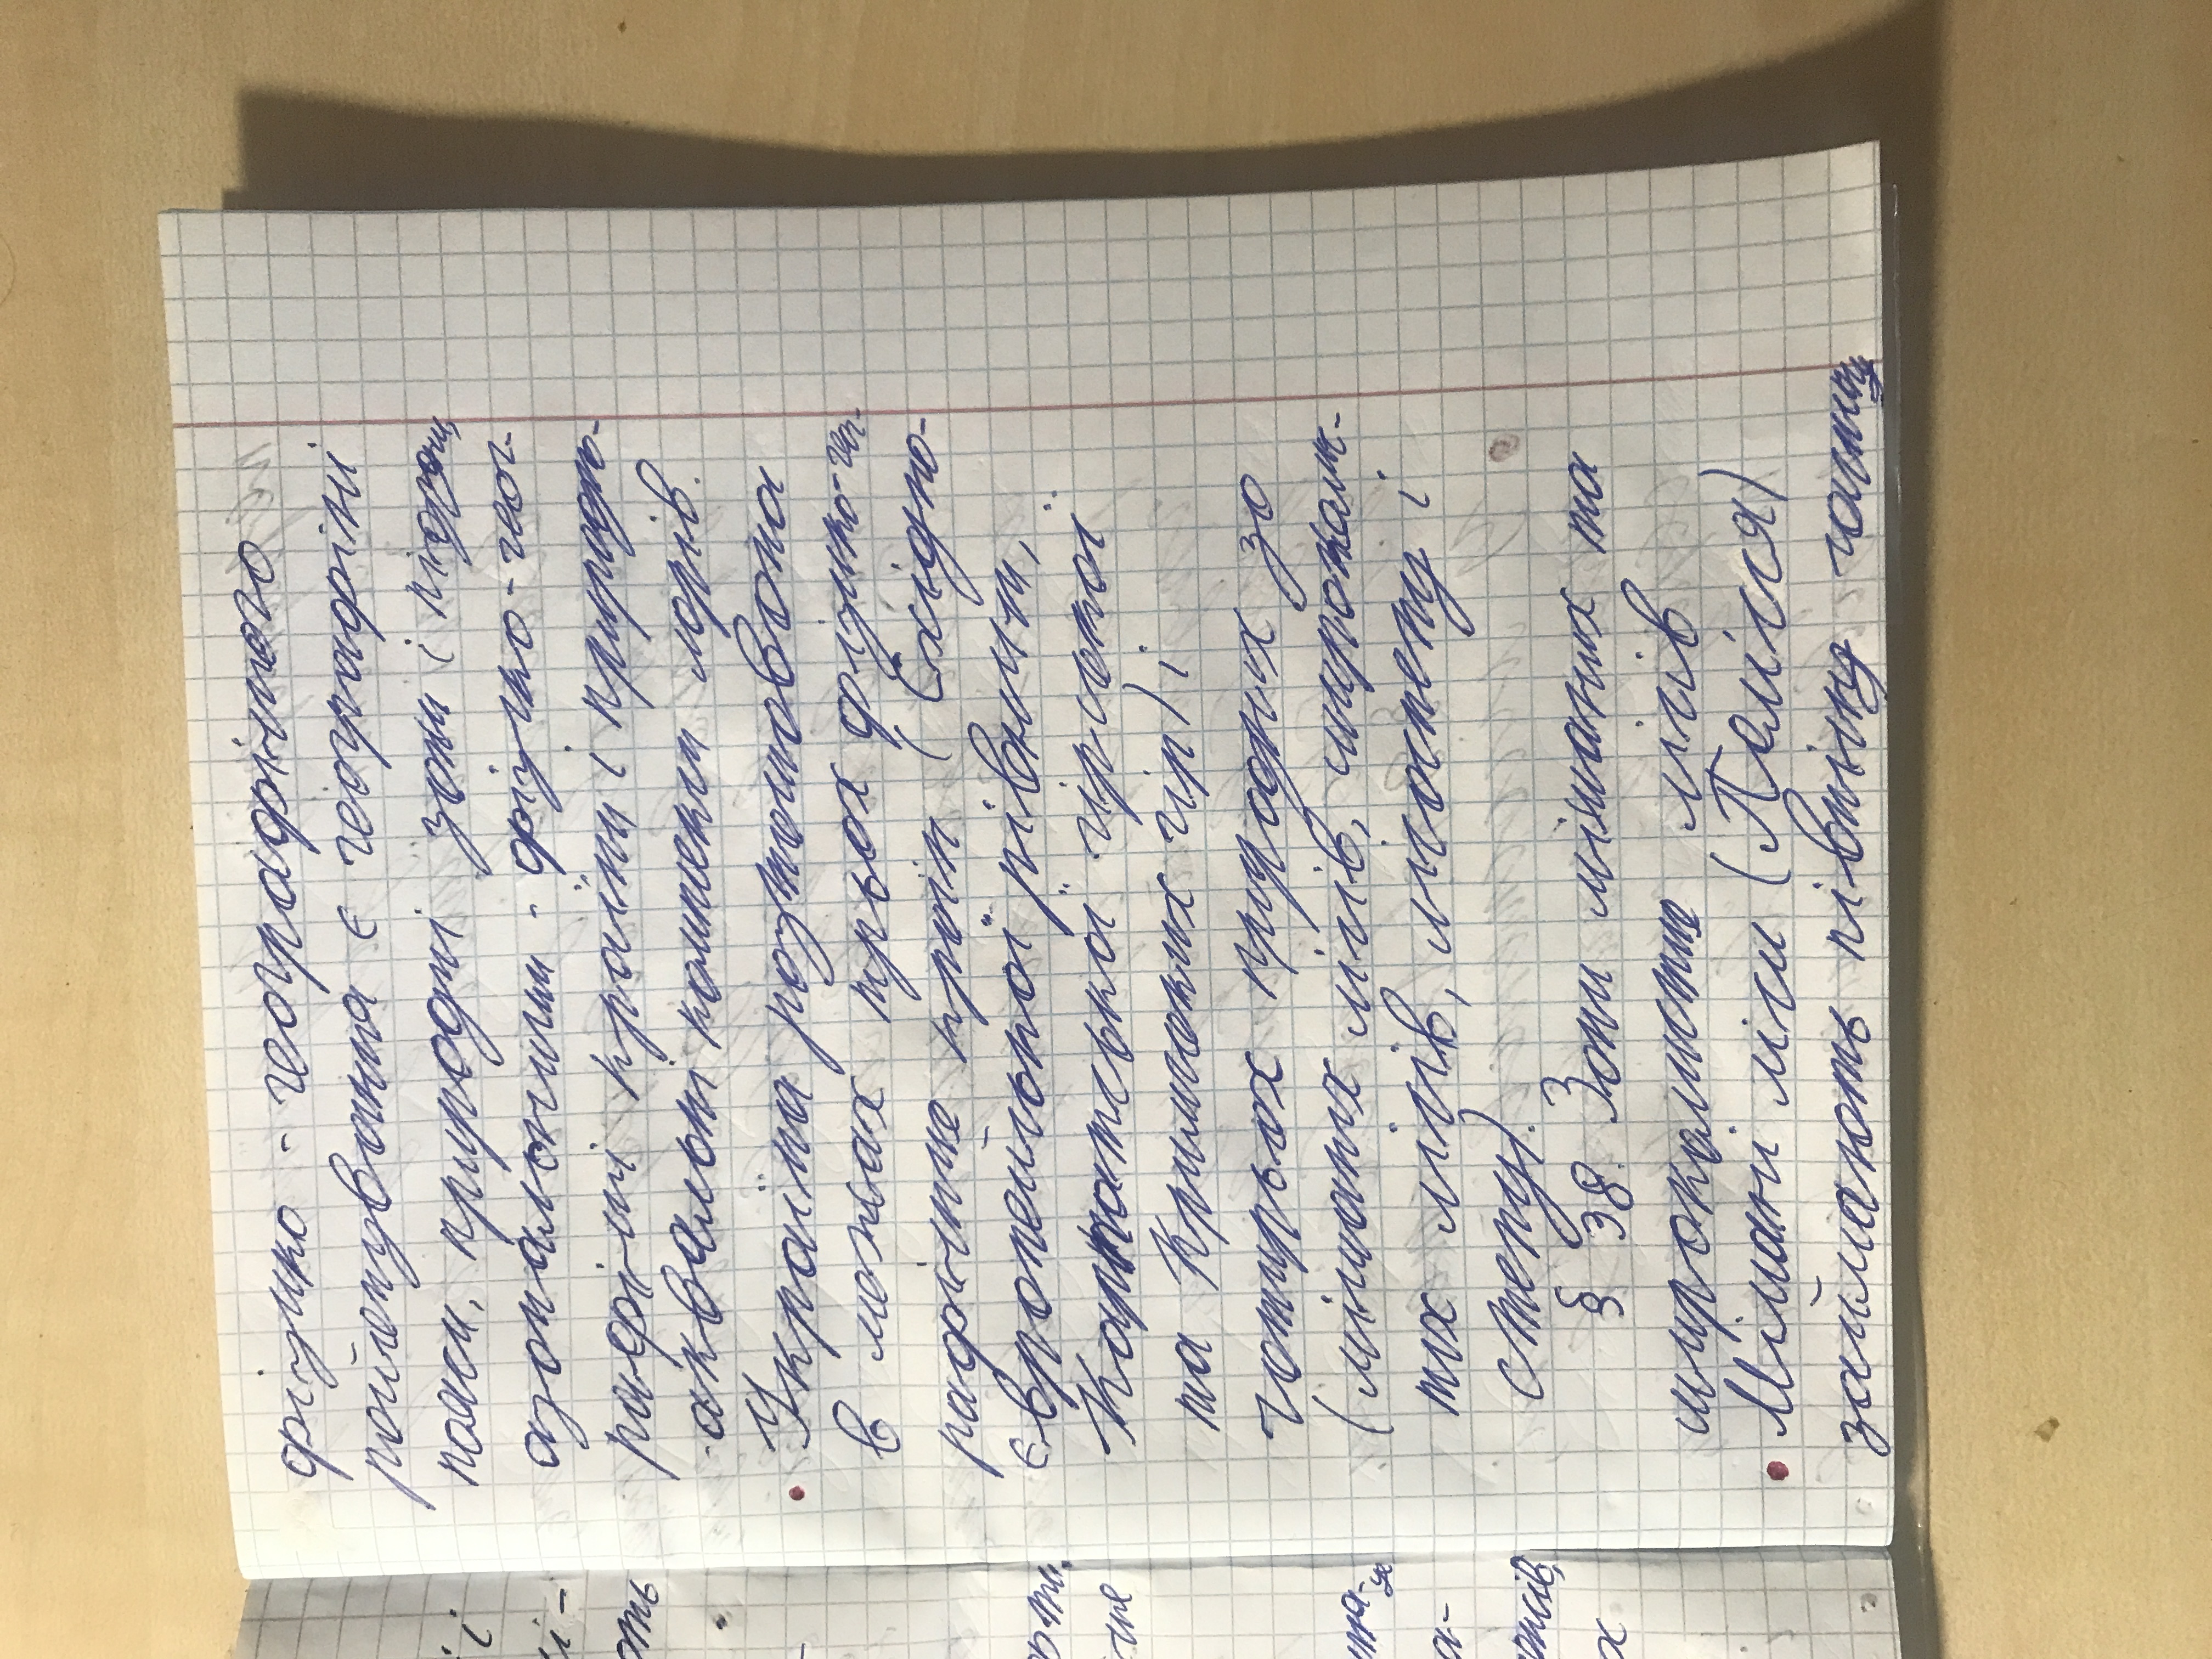 фізико-географічного
районування є географічні
пояси, природні зони і підзони,
азональними - фізико-геог-
рафічні країни і природно-
аквальні комплекси морів.
Україна розташована
в межах трьох фізико-гео-
рафічне країн (Східно-
європейської рівнини,
Карпатської гірської
та Кримських гір) і
чотирьох природних зо
(мішаних лісів, широколис-
тих лісів, лісостепу і
степу).
§ 38. Зони мішаних та
широколистих лісів
Мішані ліси (Полісся)
займають північну частину